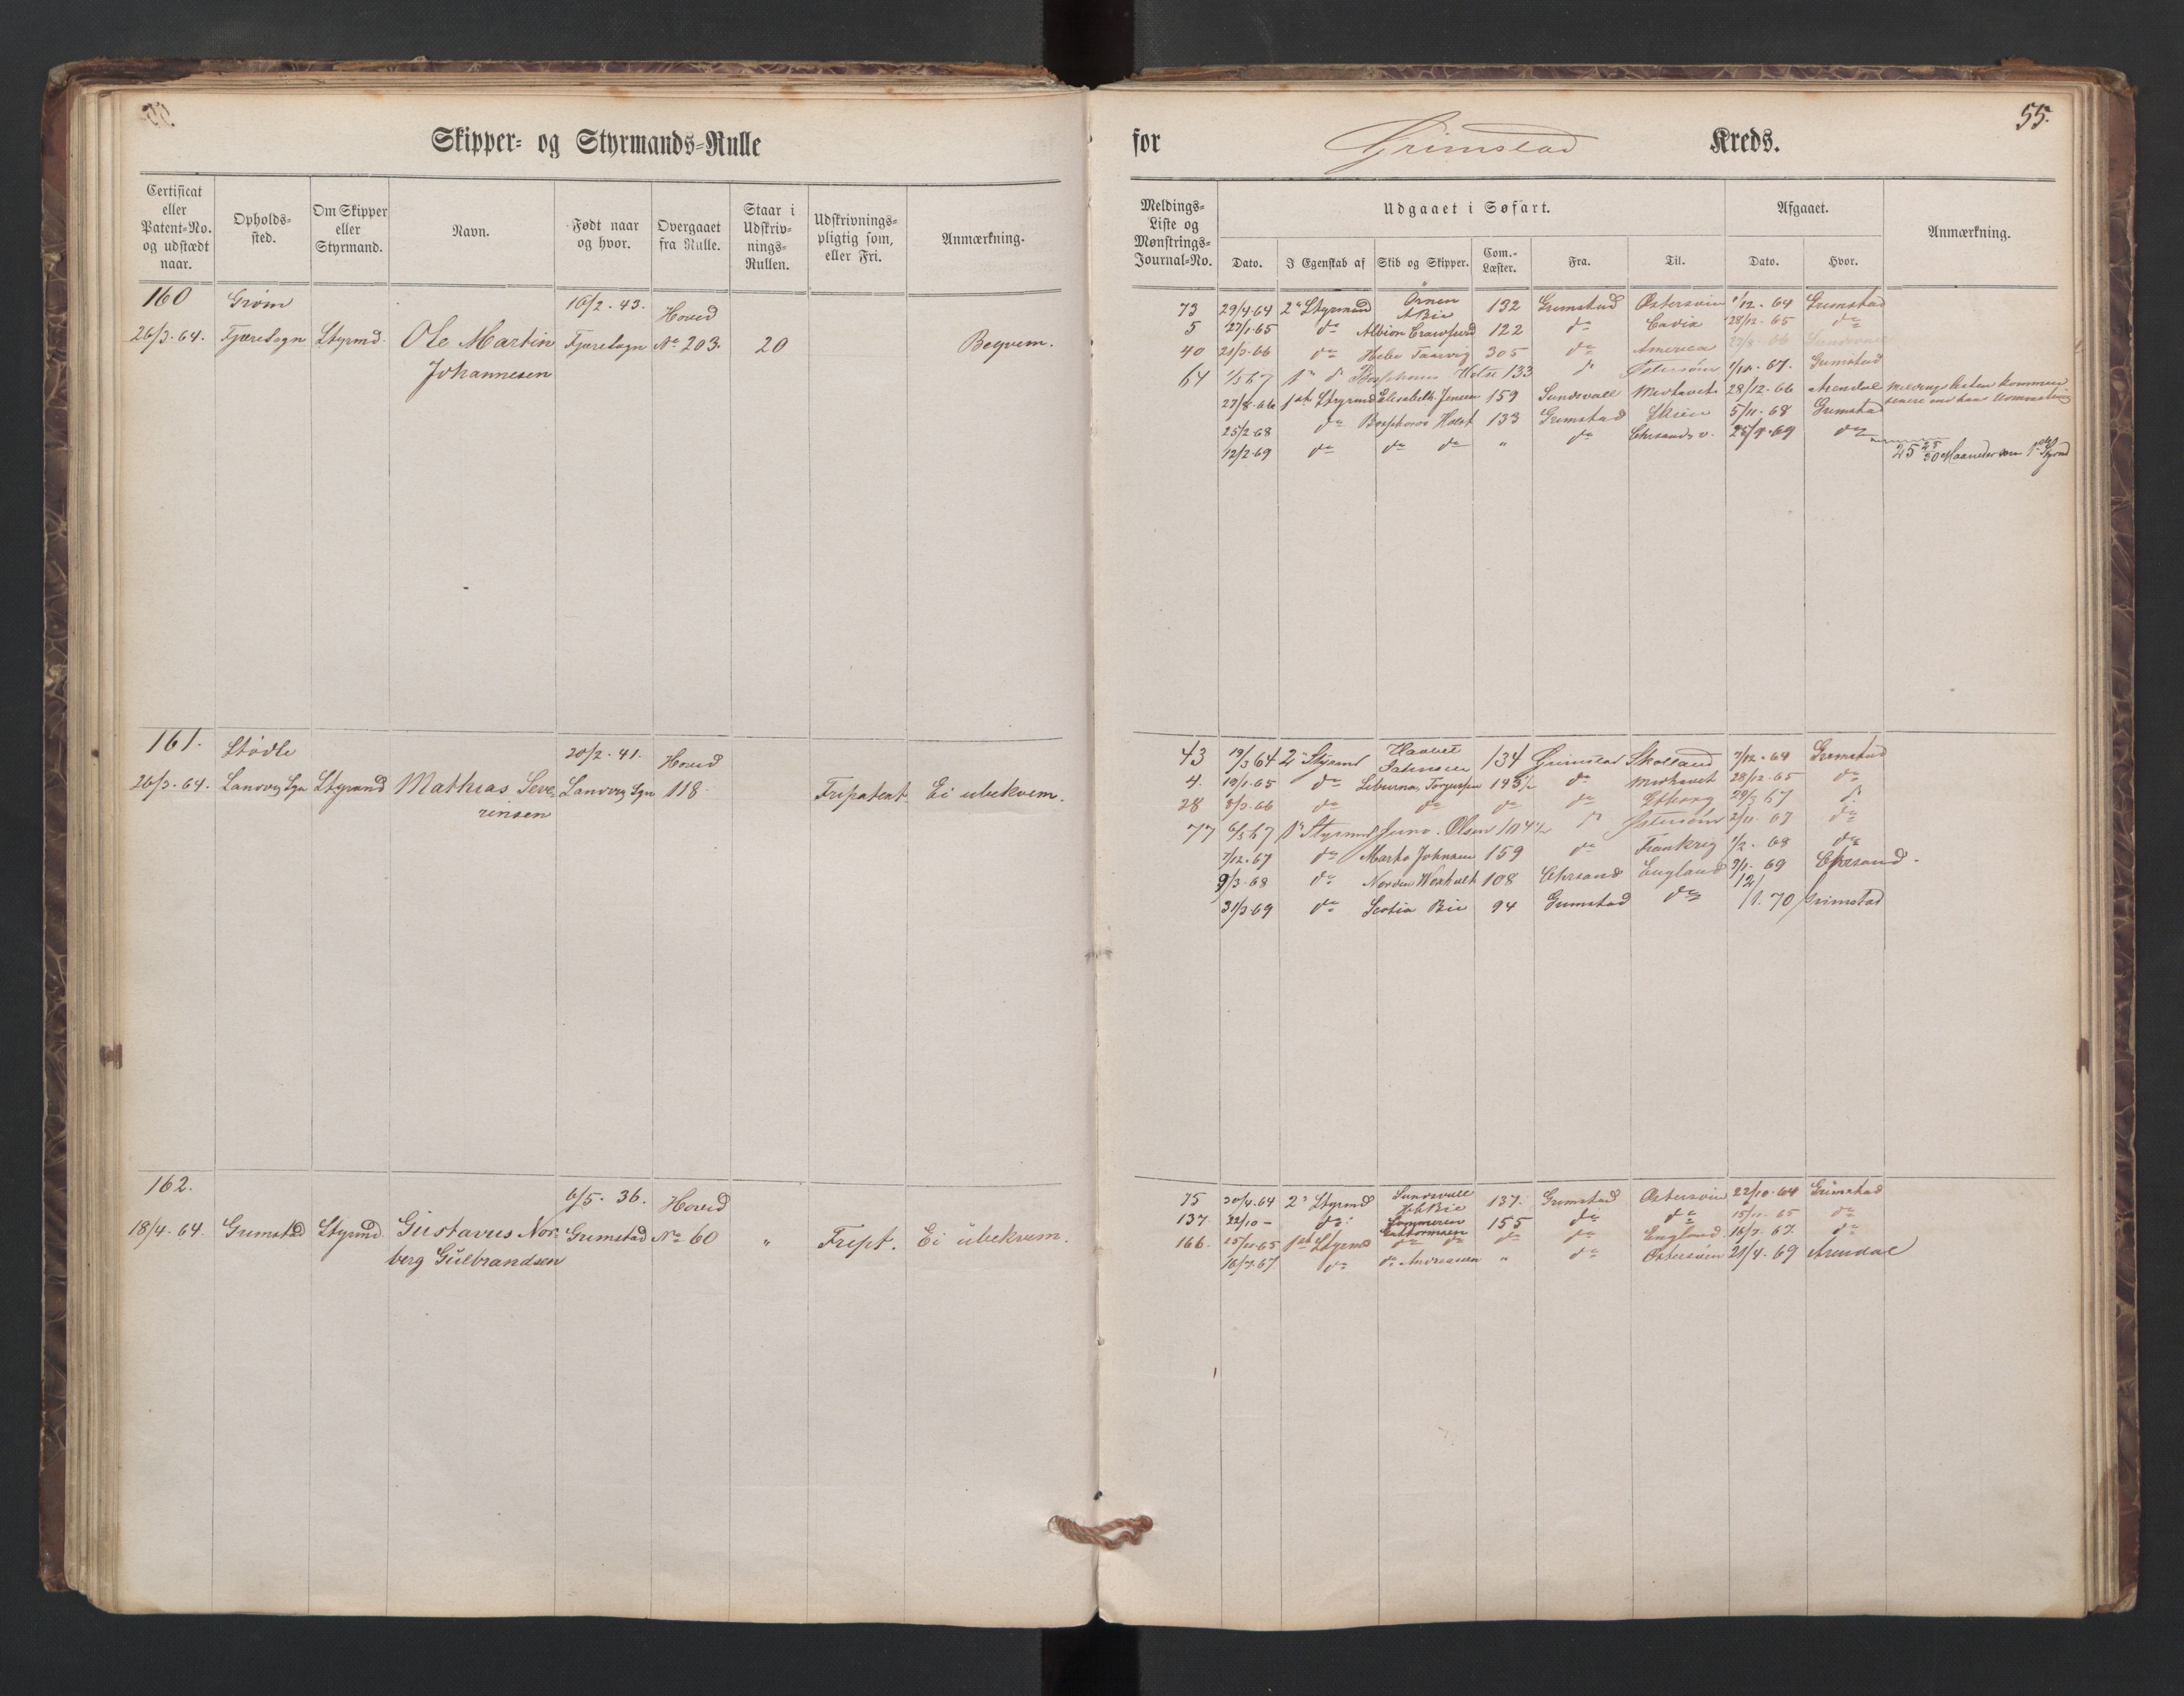 Skipper- og Styrmands-Rulle
for Grimstad Kreds.
55.
Certificat eller Patent-No. og udstædt naar.
Opholds-sted.
Om Skipper eller Styrmand.
Navn.
Født naar og hvor.
Overgaaet fra Rulle.
Staar i Udskriv-nings-Rullen.
Udskrivnings-pligtig som, eller Fri.
Anmærkning.
Meldings-Liste og Mønstrings-Journal-No.
Udgaaet i Søfart.
Dato. I Egenskab af Skib og Skipper. Com.-Læster. Fra. Til.
Afgaaet.
Dato. Hvor.
Anmærkning.
160 Grøm 16/2. 43. Hoved
26/3. 64. Fjæresogn Styrmd. Ole Martin Fjæresogn No 203. 20 Beqvem.
Johannesen
73 29/4 64 2n Styrmand Örnen A Bie 132 Grimstad Østersøen 1/12. 64 Grimstad
5 27/1. 65 do Albion Crawfurd 122 do Cadix 28/12. 65 do
40 21/3. 66 do Hebe 305 do America 27/8. 66 Sundsvall
64 1/3 67 Bosphorus Holst 133 do Østersøen 67. Grimstad
27/8. 66 1ste Styrmand Elisabeth Jensen 159 Sundsvall 28/12. 66 Arendal Meldings listen kommen
senere end hans
25/2 68 do Bosphorus Holst 133 Grimstad Skien 5/11. 68 Grimstad
12/2. 69 do do do " do Chrsands v. 25/9. 69 do
25 25/30 Maaneder som 1ste Styrmd
161. Stødle 20/2. 41. Hoved
26/3. 64. Landvig Sgn Styrmand Mathias Seve- Landvig Sgn 118. Fripatent Ei ubekvem.
rinsen
43 19/3 64 2n Styrmd Haabet 134 Grimstad Skotland 7/12. 64 Grimstad
4. 19/1. 65 do Liburna, Torgersen 145 1/2 do 28/12. 65 do
28 8/3. 66 do do do do 29/3 67 do
77 6/3 67 1n Styrmd Juno. Olsen 104 1/2 do Østersøen 2/11. 67 do
7/12. 67 do Johnsen 159 do Frankrig 1/2. 68 do
9/3. 68 do Norden 108 Chrsand England 3/1. 69 Chrsand.
31/3. 69 do Scotia Bie 94 Grimstad do 12/1. 70 Grimstad
162. 6/5. 36. Hoved
18/4. 64. Grimstad Styrmd Gustavus Nor- Grimstad No 60 " Fript. Ei übekvem.
berg Gülbrandsen
75 30/4. 64 2n Styrmd Sundsvall Bie 137. Grimstad Østersøen 22/10. 64 Grimstad
137 22/10 – do: Guttormsen 155 do do 15/11. 65 do
166. 15/11. 65 1ste Styrmd do do do do England 16/7. 67. do
16/7. 67. do do Andreasen " do Østersøen 21/4. 69 Arendal